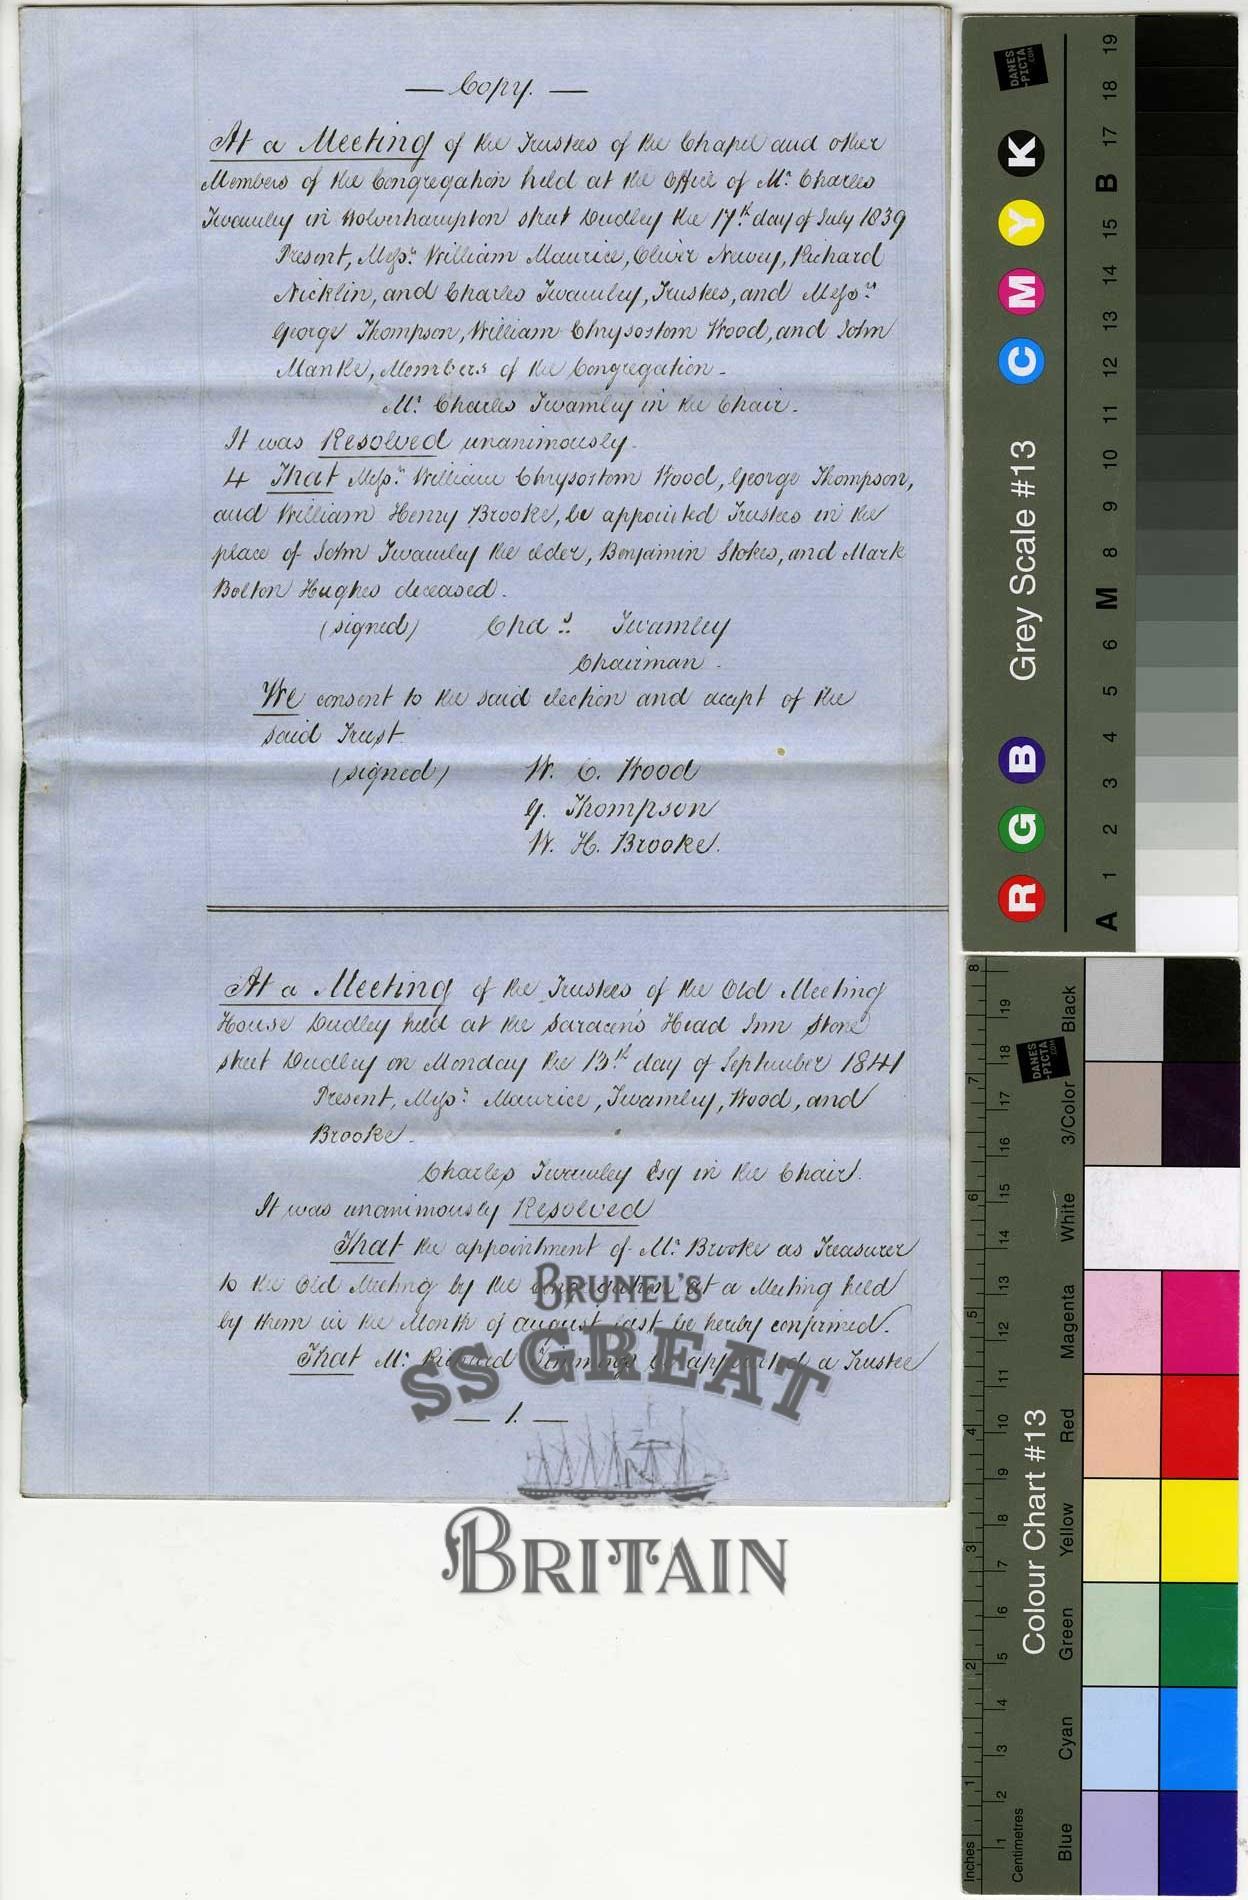 — Copy. —
At a Meeting of the Trustees of the Chapel and other
Members of the Congregation held at the Office of Mr. Charles
Twamley in Wolverhampton street Dudley the 17th. day of July 1839
Present, Messrs. William Maurice, Oliver Newey, Richard
Nicklin, and Charles Twamley, Trustees, and Messrs.
George Thompson, William Chrysostom Wood, and John
Manke, Members of the Congregation.
Mr. Charles Twamley in the Chair.
It was Resolved unanimously.
4 That Messrs. William Chrysostom Wood, George Thompson,
and William Henry Brooke, be appointed Trustees in the
place of John Twamley the elder, Benjamin Stokes, and Mark
Bolton Hughes deceased.
(signed) Chas. Twamley
Chairman.
We consent to the said election and accept of the
said Trust.
(signed) W. C. Wood
G. Thompson
W. H. Brooke.
At a Meeting of the Trustees of the Old Meeting
House Dudley held at the Saracen's Head Inn Stone
street Dudley on Monday the 13th. day of September 1841
Present, Messrs. Maurice, Twamley, Wood, and
Brooke.
Charles Twamley Esq in the Chair.
It was unanimously Resolved
That the appointment of Mr. Brooke as Treasurer
to the Old Meeting by the Congregation at a Meeting held
by them in the Month of august last be hereby confirmed.
That Mr. Richard Timmings be appointed a Trustee
— 1. —
BRUNEL'S
SS GREAT
BRITAIN
Grey Scale #13
DANES
-PICTA
.COM
R G B C M Y K
A 1 2 3 4 5 6 M 8 9 10 11 12 13 14 15 B 17 18 19
Colour Chart #13
DANES
-PICTA
.COM
Blue Cyan Green Yellow Red Magenta White 3/Color Black
Inches 1 2 3 4 5 6 7 8
Centimetres 1 2 3 4 5 6 7 8 9 10 11 12 13 14 15 16 17 18 19